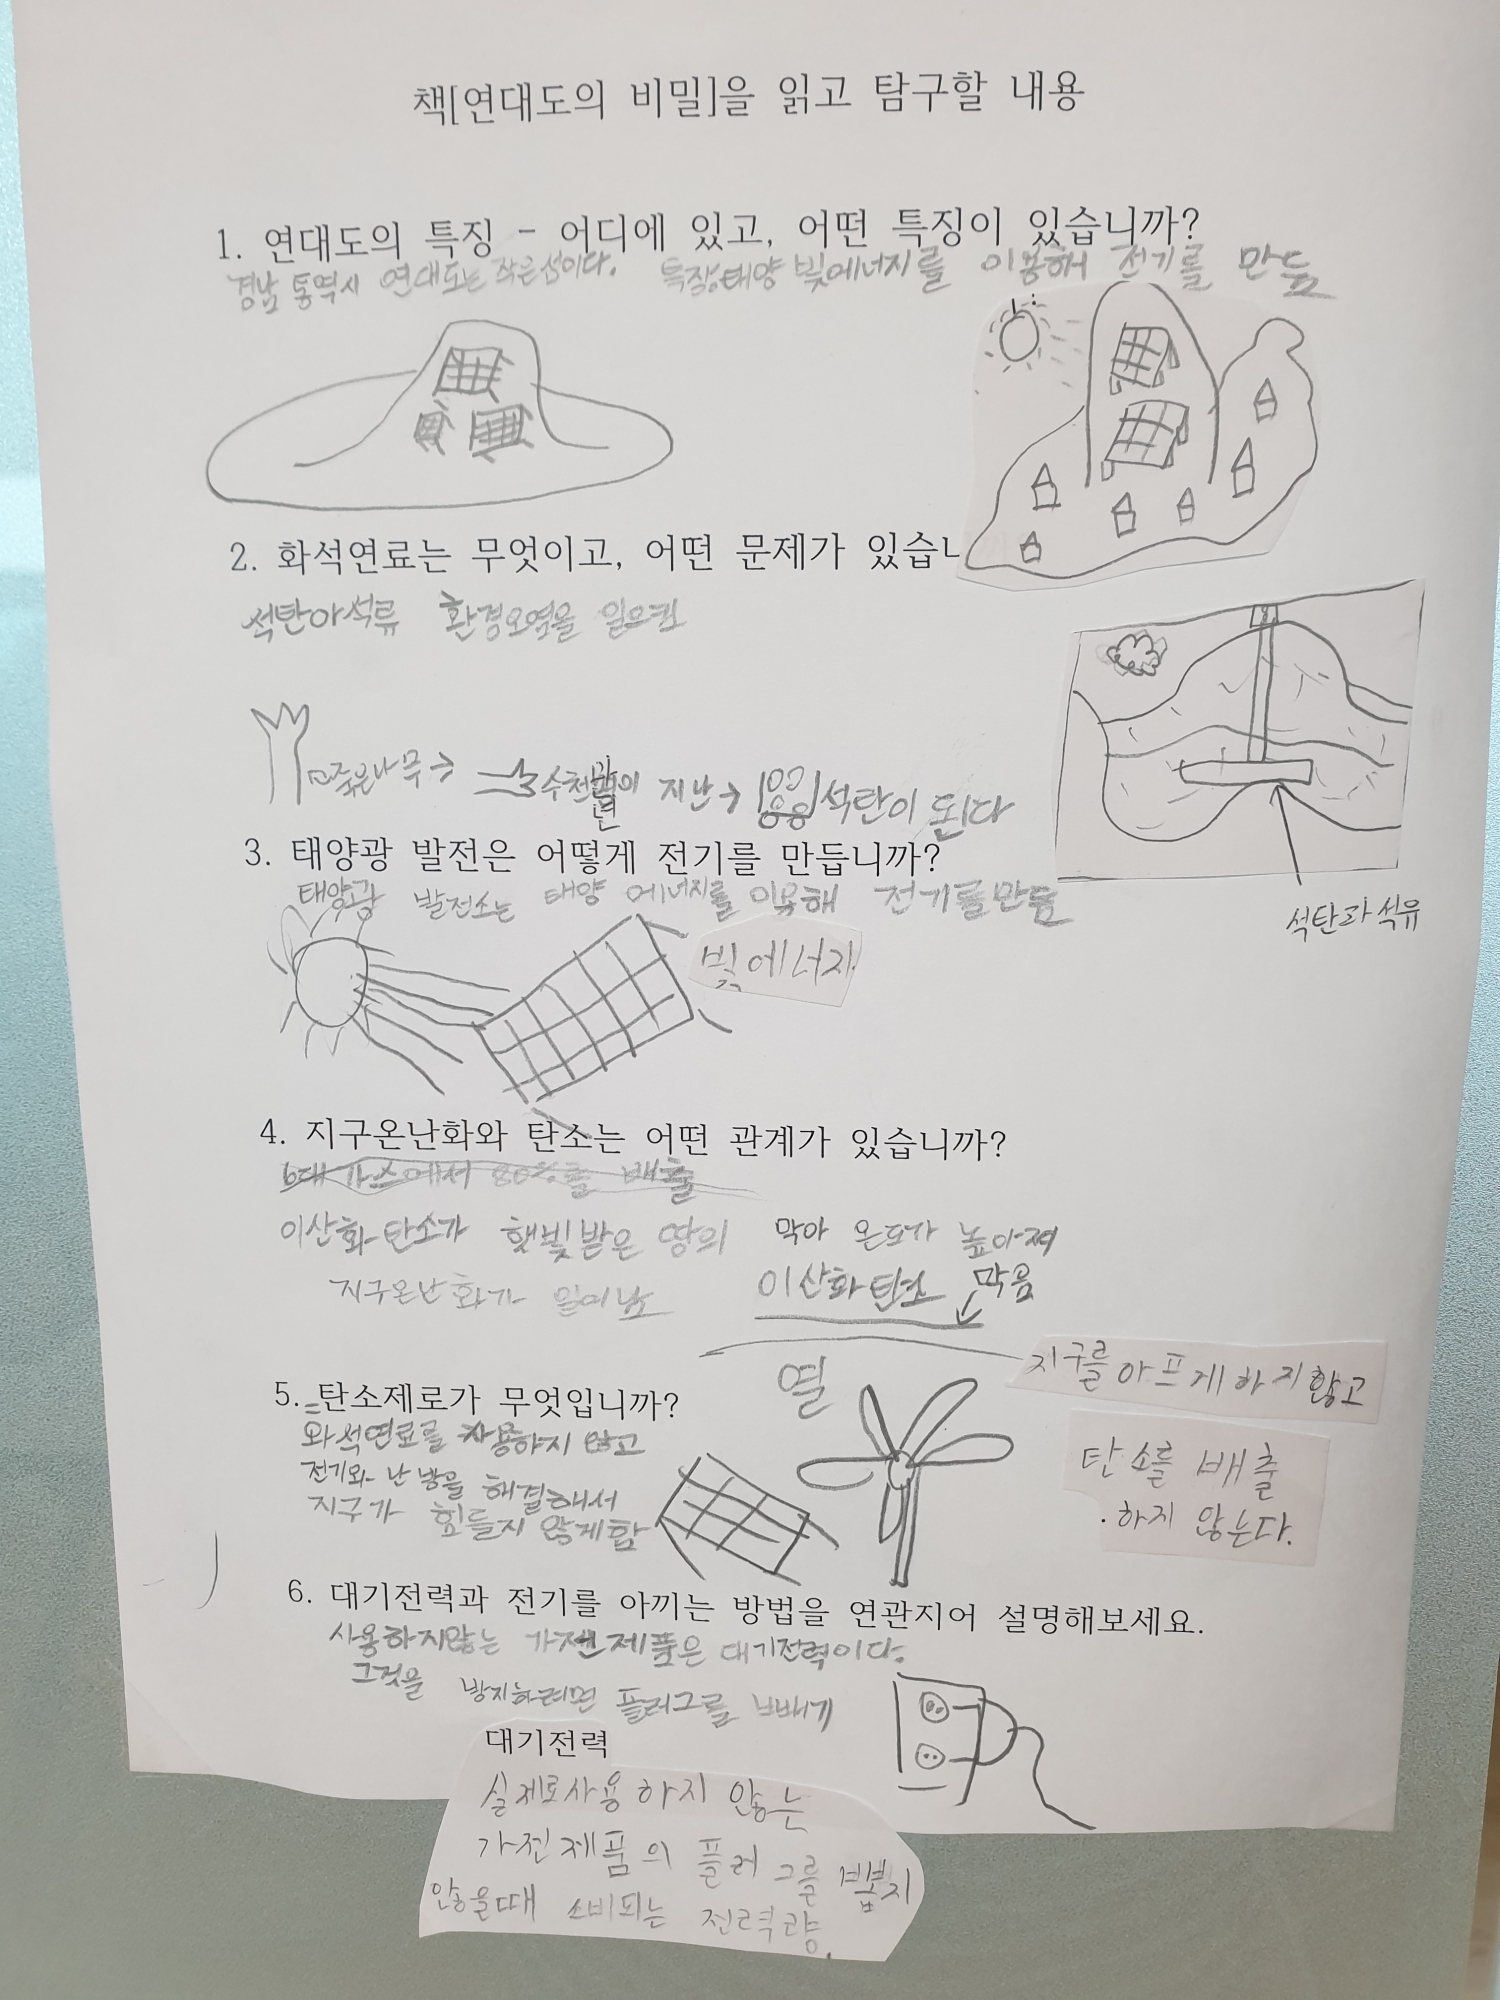 책[연대도의 비밀]을 읽고 탐구할 내용
1. 연대도의 특징 - 어디에 있고, 어떤 특징이 있습니까?
경남 통역시 연대도는 작은섬이다. 특징:태양 빛에너지를 이용해 전기를 만듬
2. 화석연료는 무엇이고, 어떤 문제가 있습니
석탄아석류 환경오염을 일으켜
죽은나무→ 수천만년이 지난→ 석탄이 된다
석탄과 석유
3. 태양광 발전은 어떻게 전기를 만듭니까?
태양광 발전소는 태양 에너지를 이용해 전기를만듬
빛에너지
4. 지구온난화와 탄소는 어떤 관계가 있습니까?
6대 가스에서 80%를 배출
이산화탄소가 햇빛받은 땅의 막아 온도가 높아져
지구온난화가 일어남
이산화탄소 막음
열
5. 탄소제로가 무엇입니까?
화석연료를 사용하지 않고
전기와 난방을 해결해서
지구가 힘들지 않게함
지구를 아프게하지않고
탄소를 배출
하지 않는다.
6. 대기전력과 전기를 아끼는 방법을 연관지어 설명해보세요.
사용하지않는 가전제품은 대기전력이다.
그것을 방지하려면 플러그를 빼기
대기전력
실제로사용하지 않는
가전제품의 플러그를 뽑지
않을때 소비되는 전력량.